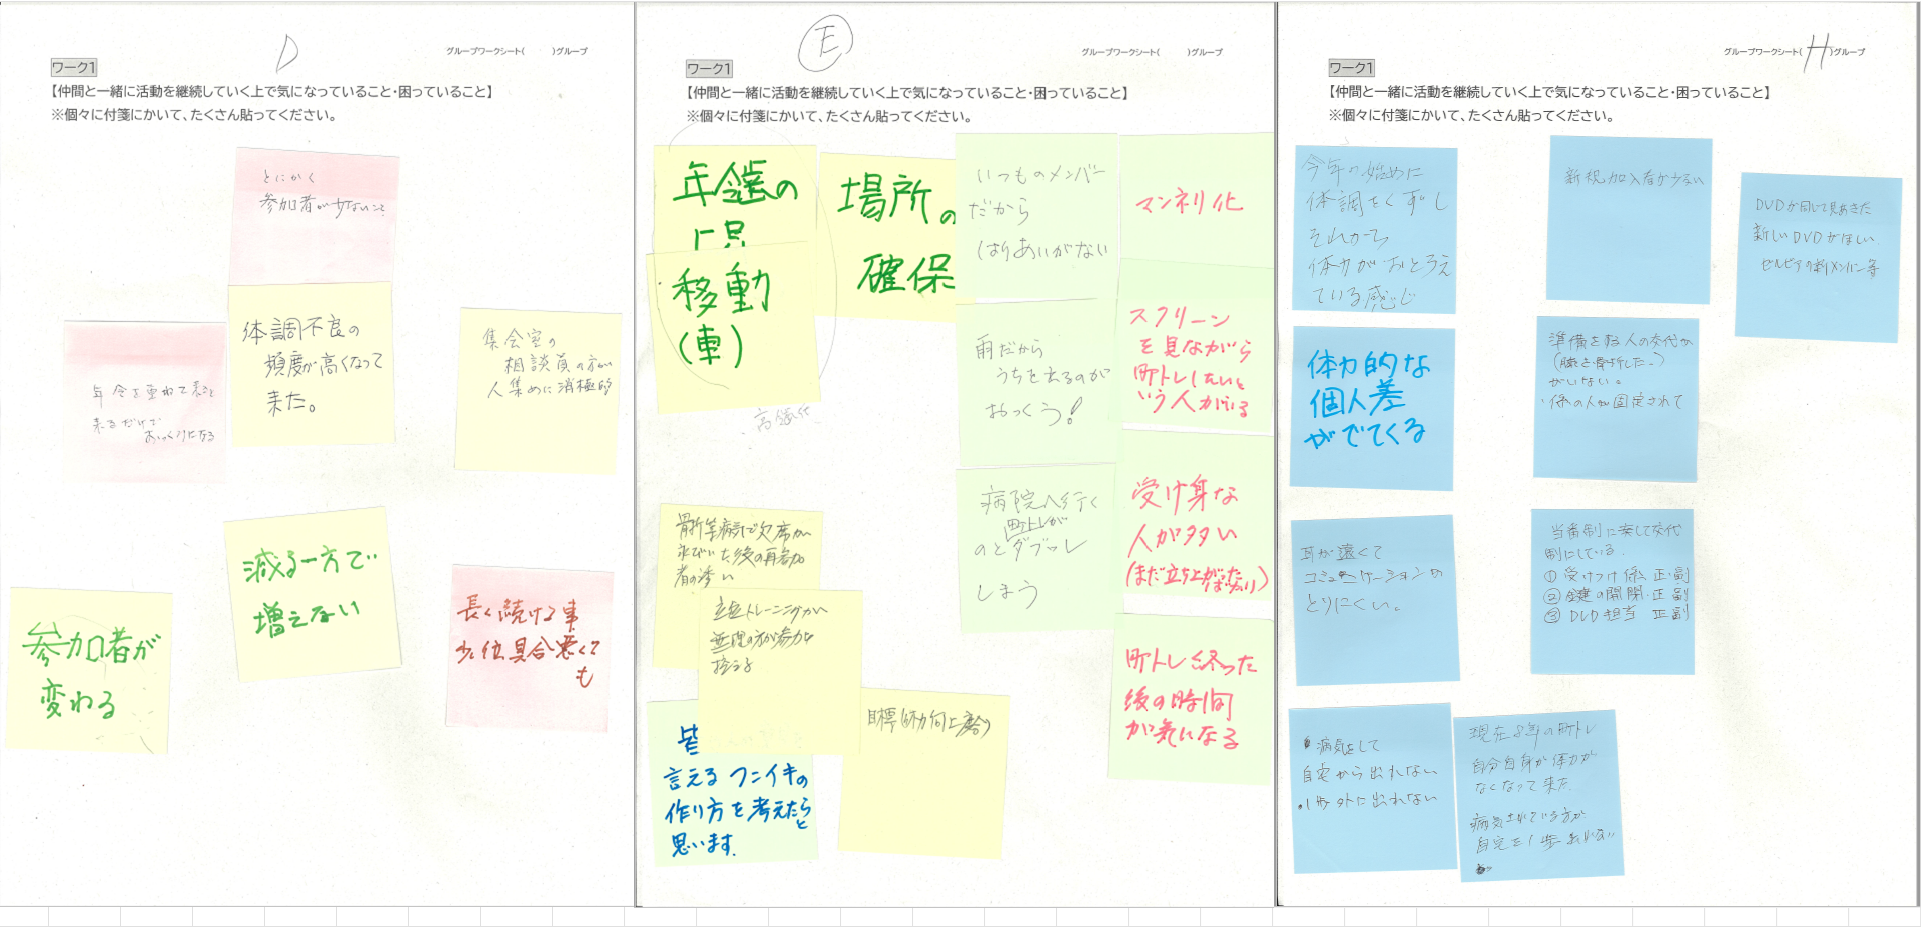 D
グループワークシート(　　)グループ
ワーク1
【仲間と一緒に活動を継続していく上で気になっていること・困っていること】
※個々に付箋にかいて、たくさん貼ってください。
とにかく
参加者が少ないこと
年令を重ねて来ると
来るだけで
おっくうになる
体調不良の
頻度が高くなって
来た。
集会室の
相談員の方が
人集めに消極的
減る一方で
増えない
参加者が
変わる
長く続ける事
少々位具合悪くて
も
E
グループワークシート(　　)グループ
ワーク1
【仲間と一緒に活動を継続していく上で気になっていること・困っていること】
※個々に付箋にかいて、たくさん貼ってください。
年齢の
移動
(車)
高齢化
場所の
確保
いつものメンバー
だから
はりあいがない
マンネリ化
雨だから
うちを出るのが
おっくう!
スクリーン
を見ながら
町トレしたいと
いう人がいる
病院へ行く
町トレが
のとダブッて
しまう
受け身な
人が多い
(まだ立ち上がった
ばかり)
町トレ終った
後の時間
が気になる
骨折等病気で欠席が
た後の再参加
者の
トレーニングが
無理の方が参加を
控える
目標(体力向上
皆
言えるフンイキの
作り方を考えたら
と
思います.
グループワークシート(H)グループ
ワーク1
【仲間と一緒に活動を継続していく上で気になっていること・困っていること】
※個々に付箋にかいて、たくさん貼ってください。
今年の始めに
体調をくずし
それから
体力がおとろえ
ている感じ
新規加入者が少ない
DVDが同じで見あきた
新しいDVDがほしい
セルビアの新メンバー等
体力的な
個人差
がでてくる
準備をする人の交代が
(腕を骨折した.)
がいない。
係の人が固定されて
耳が遠くて
コミュニケーションの
とりにくい。
当番制に変して交代
制にしている.
① 受けつけ係 正・副
② 鍵の開閉・正 副
③ DVD担当 正副
病気をして
自宅から出れない
・1歩外に出れない
現在8年の町トレ
自分自身が体力が
なくなって来た.
病気されている方が
自宅を1歩出れない